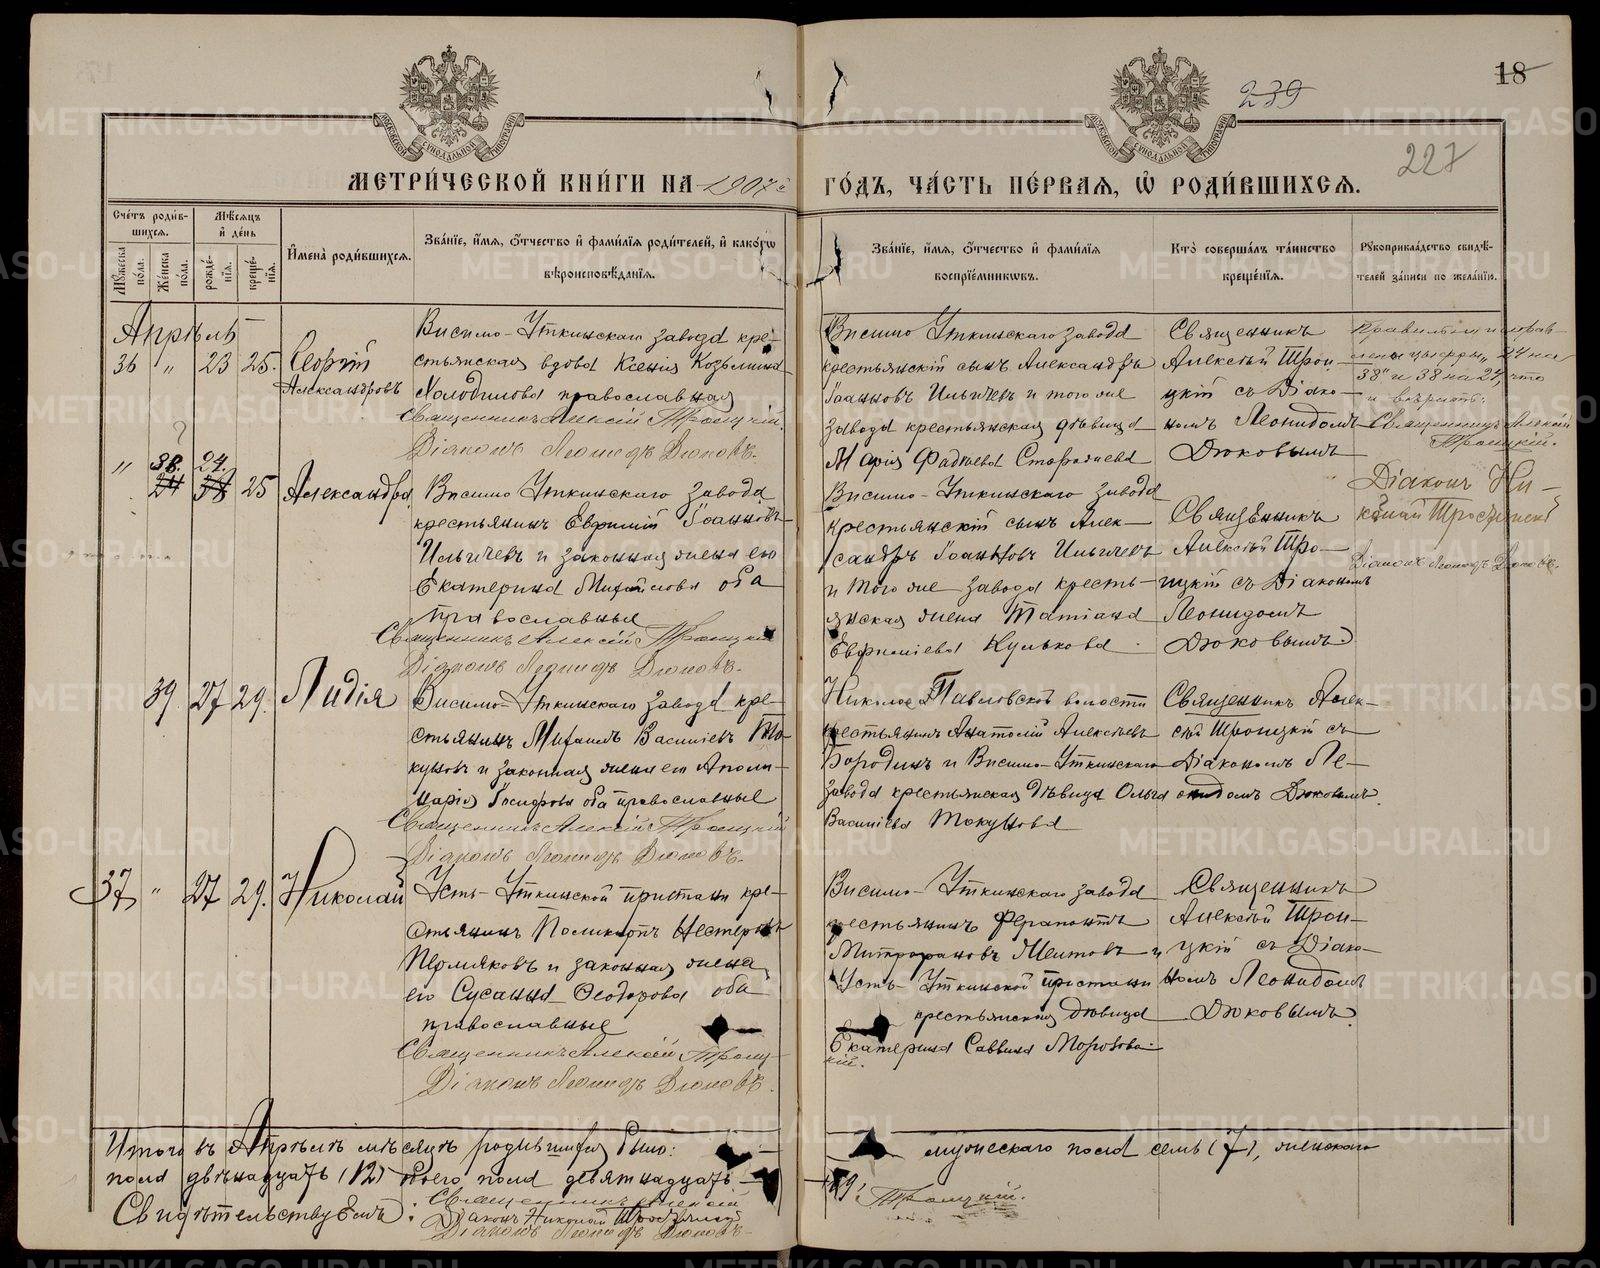 18
239
227
МОСКОВСКОЙ СУНОДАЛЬНОЙ ТИПОГРАФІИ
МОСКОВСКОЙ СУНОДАЛЬНОЙ ТИПОГРАФІИ
МЕТРИЧЕСКОЙ КНИГИ НА 1907й
ГОДЪ, ЧАСТЬ ПЕРВАЯ, Ѡ РОДИВШИХСЯ.
Счетъ родив-
шихся.
Мужеска
пола.
Женска
пола.
Мѣсяцъ
и день
рожде-
нія.
креще-
нія.
Имена родившихся.
Званіе, имя, отчество и фамилія родителей, и какогѡ
вѣроисповѣданія.
Званіе, имя, отчество и фамилія
воспріемниковъ.
Кто совершалъ таинство
крещенія.
Рукоприкладство свидѣ-
телей записи по желанію.
Апрѣль
36 " 23 25.
Георгій
Александровъ
Висимо-Уткинскаго завода кре-
стьянская вдова Ксенія Козьмина
Холодилова православная
Священникъ Алексій Троицкій.
Діаконъ Леонидъ Дюковъ.
Висимо Уткинскаго завода
крестьянскій сынъ Александръ
Іоанновъ Ильичевъ и того же
завода крестьянская дѣвица
Марія Фадѣева
Священникъ
Алексѣй Трои-
цкій съ Діако-
номъ Леонидомъ
Дюковымъ
24 на
38" и 38 на 24, что
и вѣрить:
Священникъ Алексій
Троицкій.
" 38. 24.
24 38 25
Александра
Висимо Уткинскаго завода
крестьянинъ Евфимій Іоанновъ
Ильичевъ и законная жена его
Екатерина Михайлова оба
православные
Священникъ Алексій Троицкій
Діаконъ Леонидъ Дюковъ.
Висимо-Уткинскаго завода
крестьянскій сынъ Алек-
сандръ Іоанновъ Ильичевъ
и того же завода кресть-
янская жена Татіана
Евфиміева Кулькова
Священникъ
Алексѣй Тро-
ицкій съ Діакономъ
Леонидомъ
Дюковымъ
Діаконъ Ни-
колай
Діаконъ Леонидъ Дюковъ.
39. 27 29.
Лидія
Висимо-Уткинскаго завода кре-
стьянинъ Михаилъ Василіевъ То-
куновъ и законная жена его Аполи-
нарія Іосифова оба православные
Священникъ Алексій Троицкій
Діаконъ Леонидъ Дюковъ.
Николае Павловской волости
крестьянинъ Анатолій Алексѣевъ
Бородинъ и Висимо-Уткинскаго
завода крестьянская дѣвица Ольга
Василіева Токунова
Священникъ Алек-
сѣй Троицкій съ
Діакономъ Ле-
онидомъ Дюковымъ.
37 " 27 29.
Николай
Усть-Уткинской пристани кре-
стьянинъ Поликарпъ Нестеровъ
Пермяковъ и законная жена
его Сусанна Ѳеодорова оба
православные
Священникъ Алексій Троиц-
кій.
Діаконъ Леонидъ Дюковъ.
Висимо-Уткинскаго завода
крестьянинъ Ферапонтъ
Митрофановъ и
Усть-Уткинской пристани
крестьянская дѣвица
Екатерина Саввина Морозова
Священникъ
Алексѣй Трои-
цкій съ Діако-
номъ Леонидомъ
Дюковымъ.
Итого въ Апрѣлѣ мѣсяцѣ родившихся было: мужескаго пола семь (7), женскаго
пола двѣнадцать (12) обоего пола девятнадцать 19.
Свидѣтельствуемъ: Священникъ Алексій Троицкій.
Діаконъ Николай
Діаконъ Леонидъ Дюковъ
METRIKI.GASO-URAL.RU